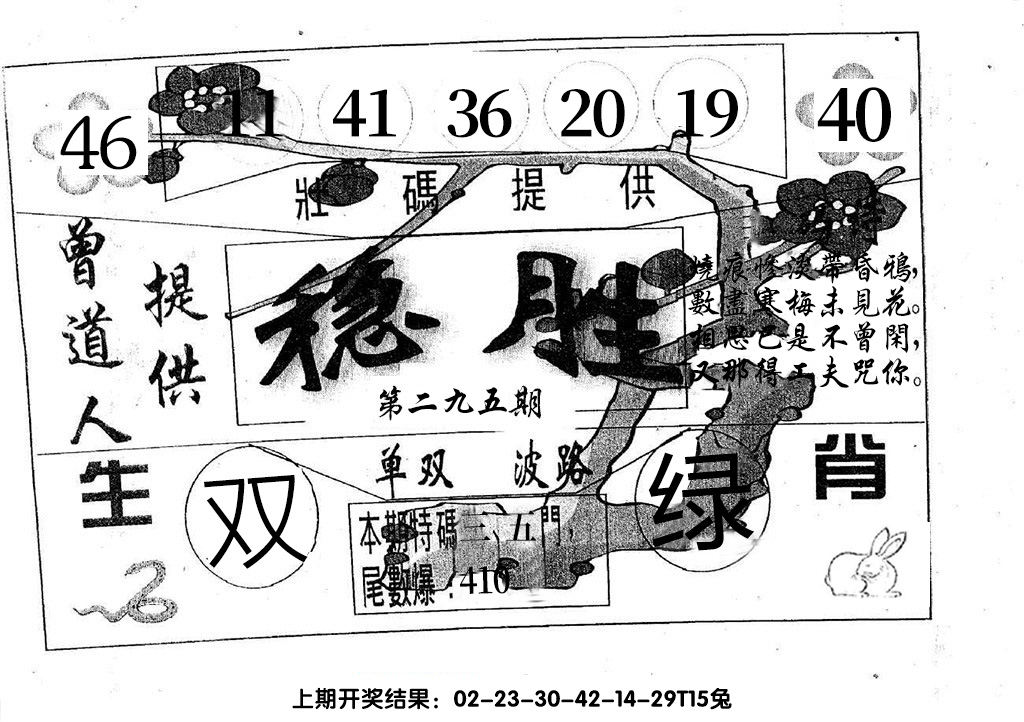 46 11 41 36 20 19 40
壯碼提供
曾道人
提供
稳胜
第二九五期
詩
燒痕慘淡帶昏鴉，
數盡寒梅未見花。
相思已是不曾閑，
又那得工夫咒你。
单双 波路
生肖
双
绿
本期特碼三、五門，
尾數爆：410
上期开奖结果：02-23-30-42-14-29T15兔